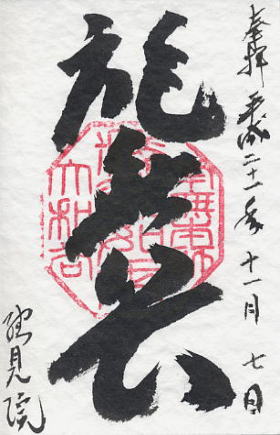 奉拝 平成二十一年十一月七日
施無畏
総見院